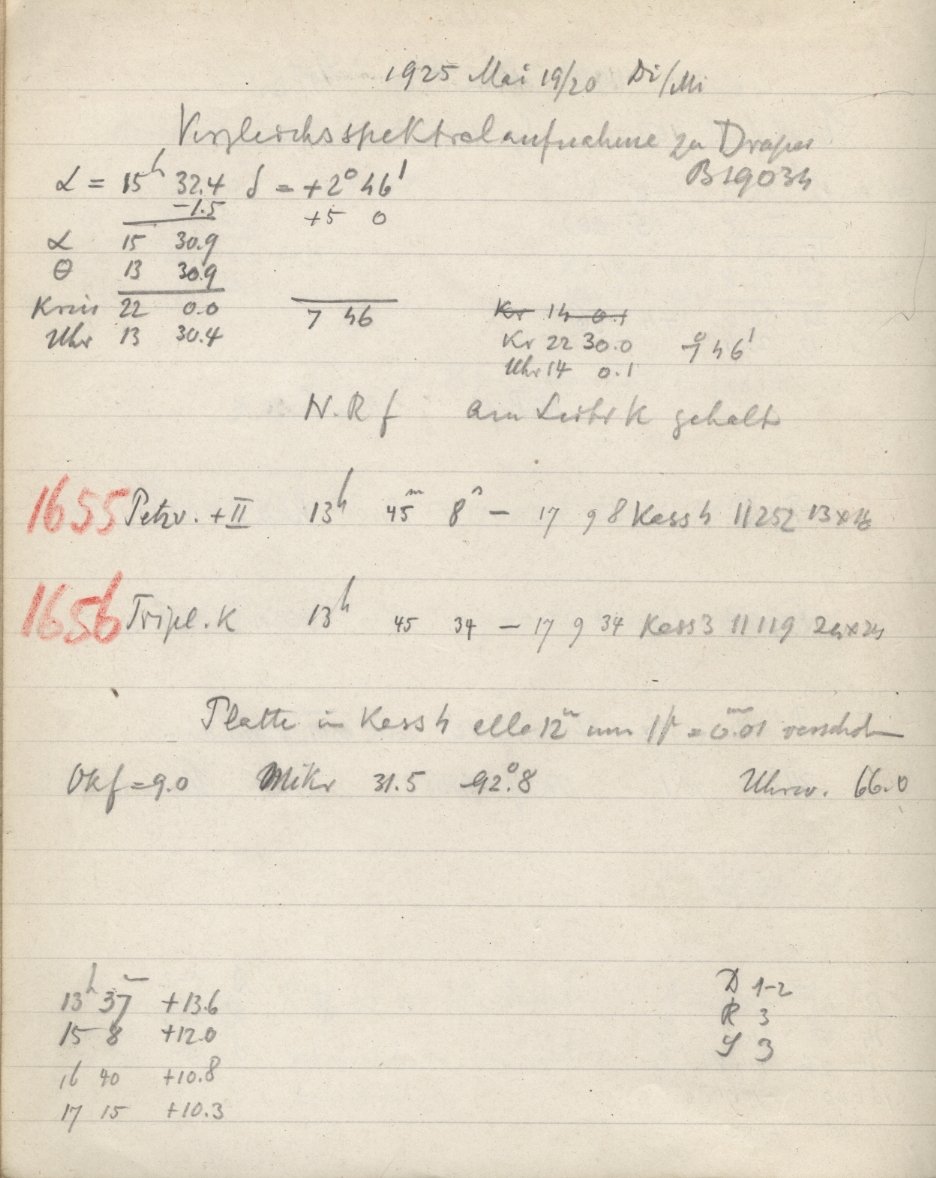 1925 Mai 19/20 Di/Mi
Vergleichsspektralaufnahme zu Draper
B19034
α = 15ʰ 32.4 δ = +2° 46'
-1.5 +5 0
α 15 30.9
θ 13 30.9
Kreis 22 0.0 7 46
Uhr 13 30.4
Kr 14 0.1
Kr 22 30.0 7° 46'
Uhr 14 0.1
N. R f am Leitr K gehalt
1655 Petzv. + II 13ʰ 45ᵐ 8ˢ — 17 9 8 Kass 4 11252 13x18
1656 Tripl. K 13ʰ 45 34 — 17 9 34 Kass 3 11119 24x24
Platte in Kass 4 alle 12ᵐ um = 0.01 verschoben
Okf = 9.0 Mikr 31.5 92°.8 Uhrw. 66.0
13ʰ 37ᵐ +13.6
15 8 +12.0
16 40 +10.8
17 15 +10.3
D 1-2
R 3
S 3